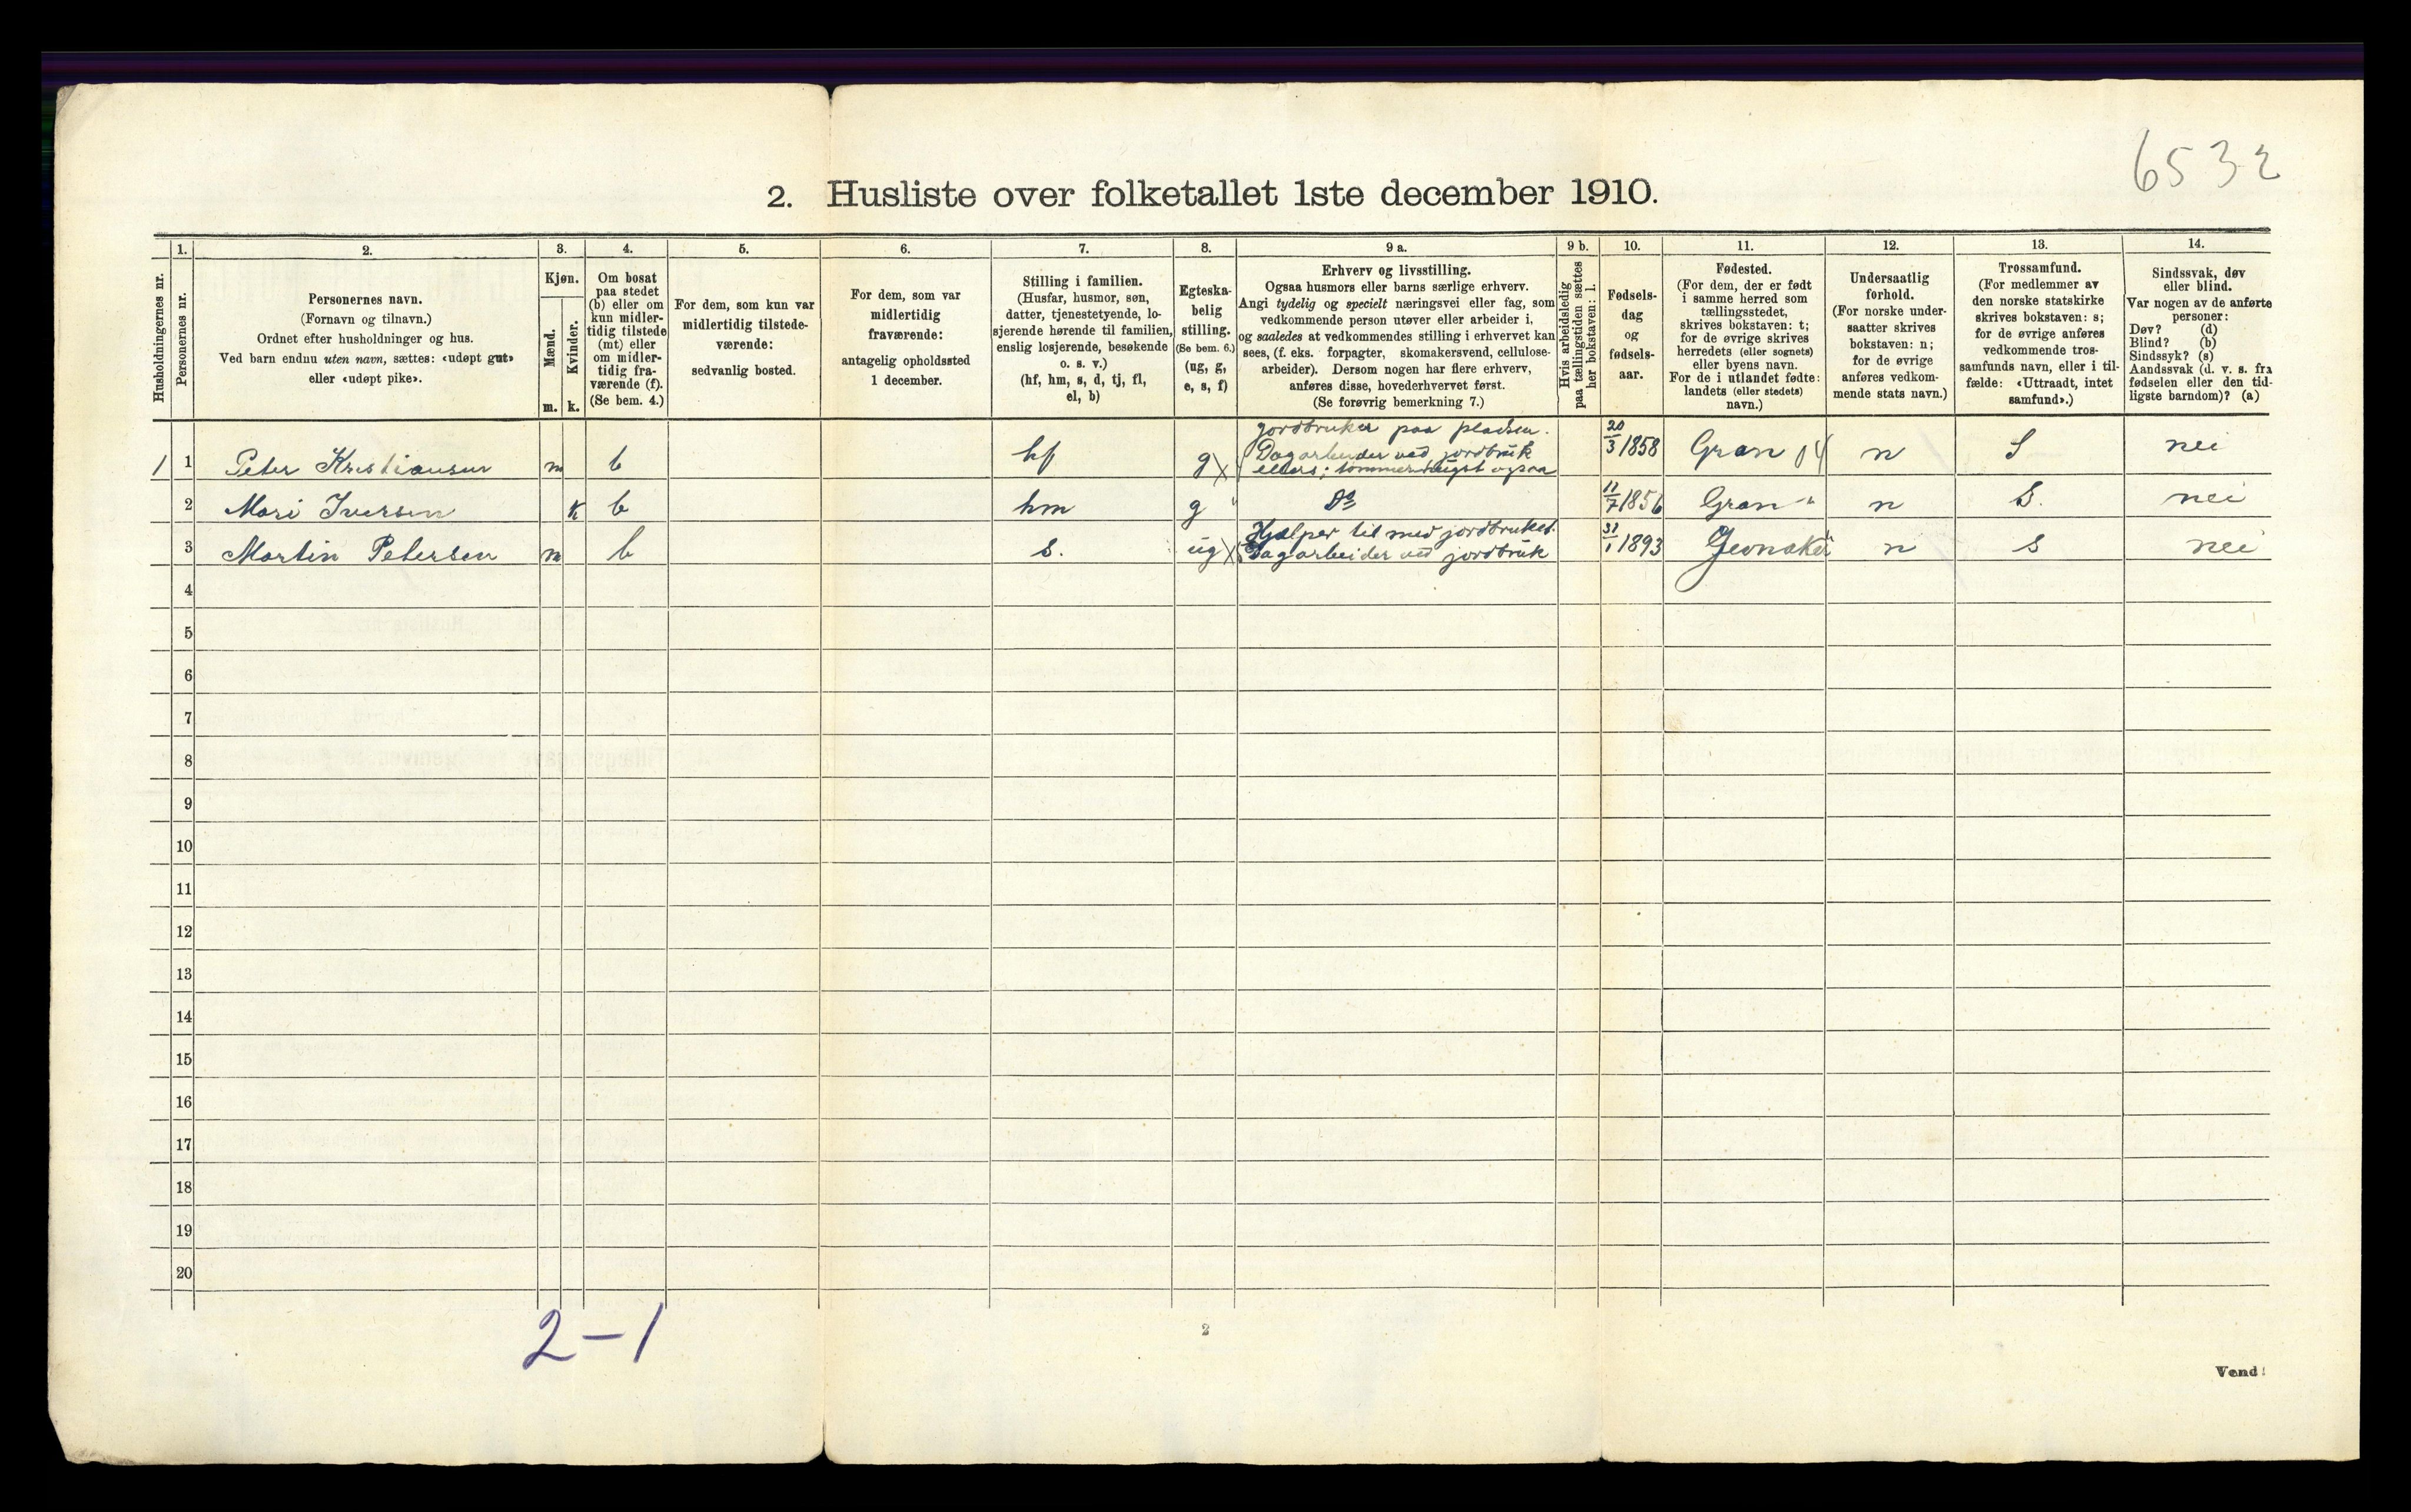 6532
2. Husliste over folketallet 1ste december 1910.
Husholdningernes nr.
1.
Personernes nr.
2.
Personernes navn.
(Fornavn og tilnavn.)
Ordnet efter husholdninger og hus.
Ved barn endnu uten navn, sættes: «udøpt gut»
eller «udøpt pike».
3.
Kjøn.
Mænd.
Kvinder.
m. k.
4.
Om bosat
paa stedet
(b) eller om
kun midler-
tidig tilstede
(mt) eller
om midler-
tidig fra-
værende (f).
(Se bem. 4.)
5.
For dem, som kun var
midlertidig tilstede-
værende:
sedvanlig bosted.
6.
For dem, som var
midlertidig
fraværende:
antagelig opholdssted
1 december.
7.
Stilling i familien.
(Husfar, husmor, søn,
datter, tjenestetyende, lo-
sjerende hørende til familien,
enslig losjerende, besøkende
o. s. v.)
(hf, hm, s, d, tj, fl,
el, b)
8.
Egteska-
belig
stilling.
(Se bem. 6.)
(ug, g,
e, s, f)
9 a.
Erhverv og livsstilling.
Ogsaa husmors eller barns særlige erhverv.
Angi tydelig og specielt næringsvei eller fag, som
vedkommende person utøver eller arbeider i,
og saaledes at vedkommendes stilling i erhvervet kan
sees, (f. eks. forpagter, skomakersvend, cellulose-
arbeider). Dersom nogen har flere erhverv,
anføres disse, hovederhvervet først.
(Se forøvrig bemerkning 7.)
9 b.
Hvis arbeidsledig
paa tællingstiden sættes
her bokstaven: l.
10.
Fødsels-
dag
og
fødsels-
aar.
11.
Fødested.
(For dem, der er født
i samme herred som
tællingsstedet,
skrives bokstaven: t;
for de øvrige skrives
herredets (eller sognets)
eller byens navn.
For de i utlandet fødte:
landets (eller stedets)
navn.)
12.
Undersaatlig
forhold.
(For norske under-
saatter skrives
bokstaven: n;
for de øvrige
anføres vedkom-
mende stats navn.)
13.
Trossamfund.
(For medlemmer av
den norske statskirke
skrives bokstaven: s;
for de øvrige anføres
vedkommende tros-
samfunds navn, eller i til-
fælde: «Uttraadt, intet
samfund».)
14.
Sindssvak, døv
eller blind.
Var nogen av de anførte
personer:
Døv? (d)
Blind? (b)
Sindssyk? (s)
Aandssvak (d. v. s. fra
fødselen eller den tid-
ligste barndom)? (a)
jordbruker paa pladsen.
1 1 Peter Kristiansen m b hf g X Dagarbeider ved jordbruk 20/3 1858 Gran n S nei
ellers; tømmerhugst ogsaa
2 Mari Iversen k b hm g " Do 11/7 1856 Gran " n S. nei
Hjælper til med jordbruket.
3 Martin Petersen m b s. ug X Dagarbeider ved jordbruk 31/1 1893 Jevnaker n s nei
4
5
6
7
8
9
10
11
12
13
14
15
16
17
18
19
20
2-1
2
Vend!